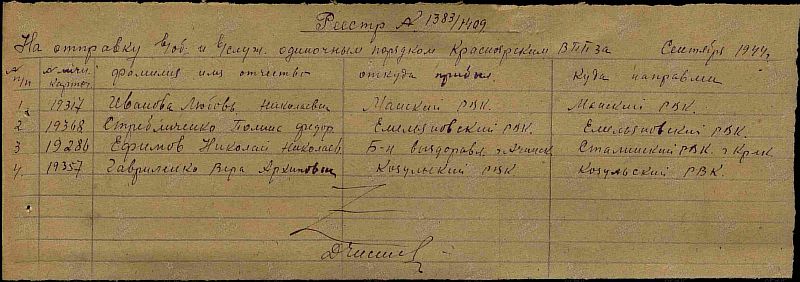 Реестр № 1383/1409
На отправку в/об. и в/служ. одиночным порядком Красноярским ВПП за Сентября 1944 г.
№ п/п № личн. карточ. фамилия имя отчество откуда прибыл. Куда направлен
1. 19317 Иванова Любовь Николаевн Манский РВК. Манский РВК.
2 19368 Емельяновский РВК. Емельяновский РВК.
3 19286 Ефимов Николай Николаев. Б-н выздоравл. г. Ачинск Сталинский РВК. г. Крск
4. 19357 Гавриленко Вера Архиповн Козульский РВК Козульский РВК.